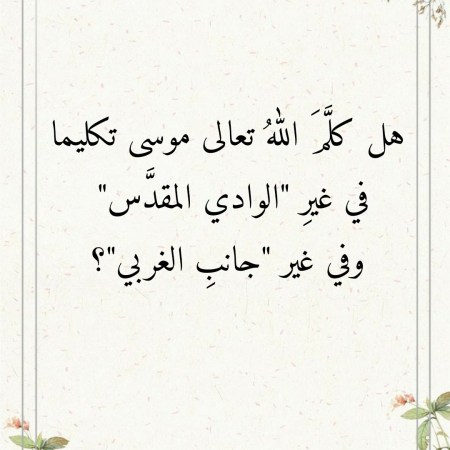 هل كلَّمَ اللهُ تعالى موسى تكليما
في غيرِ "الوادي المقدَّس"
وفي غير "جانبِ الغربي"؟